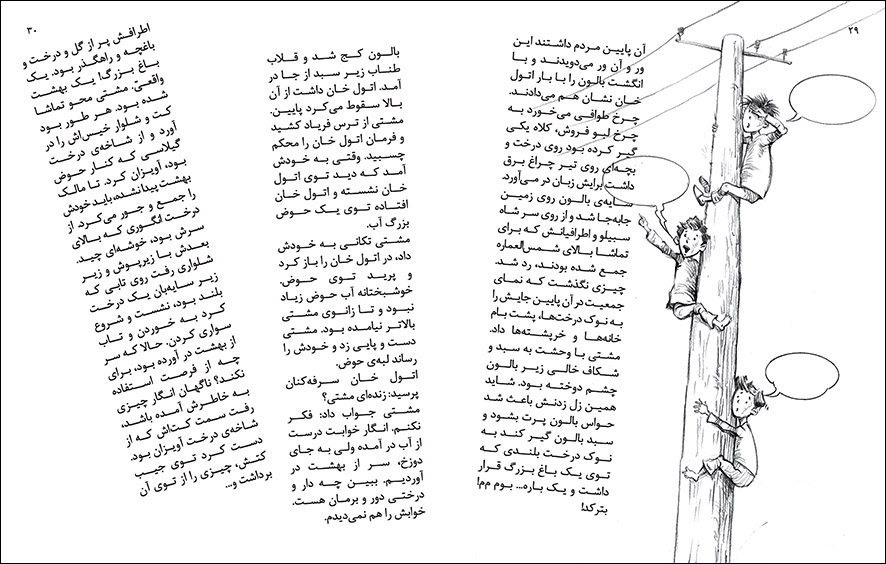 ۲۹
آن پایین مردم داشتند این
ور و آن ور می‌دویدند و با
انگشت بالون را با بار اتول
خان نشان هم می‌دادند.
چرخ طوافی می‌خورد به
چرخ لبو فروش، کلاه یکی
گیر کرده بود روی درخت و
بچه‌ای روی تیر چراغ برق
داشت برایش زبان در می‌آورد.
سایه‌ی بالون روی زمین
جابه‌جا شد و از روی سر شاه
سبیلو و اطرافیانش که برای
تماشا بالای شمس‌العماره
جمع شده بودند، رد شد.
چیزی نگذشت که نمای
جمعیت در آن پایین جایش را
به نوک درخت‌ها، پشت بام
خانه‌ها و خرپشته‌ها داد.
مشتی با وحشت به سبد و
شکاف خالی زیر بالون
چشم دوخته بود. شاید
همین زل زدنش باعث شد
حواس بالون پرت بشود و
سبد بالون گیر کند به
نوک درخت بلندی که
توی یک باغ بزرگ قرار
داشت و یک باره... بوم مم!
بترکد!
۳۰
بالون کج شد و قلاب
طناب زیر سبد از جا در
آمد. اتول خان داشت از آن
بالا سقوط می‌کرد پایین.
مشتی از ترس فریاد کشید
و فرمان اتول خان را محکم
چسبید. وقتی به خودش
آمد که دید توی اتول
خان نشسته و اتول خان
افتاده توی یک حوض
بزرگ آب.
مشتی تکانی به خودش
داد، در اتول خان را باز کرد
و پرید توی حوض.
خوشبختانه آب حوض زیاد
نبود و تا زانوی مشتی
بالاتر نیامده بود. مشتی
دست و پایی زد و خودش را
رساند لبه‌ی حوض.
اتول خان سرفه‌کنان
پرسید: زنده‌ای مشتی؟
مشتی جواب داد: فکر
نکنم. انگار خوابت درست
از آب در آمده ولی به جای
دوزخ، سر از بهشت در
آوردیم. ببین چه دار و
درختی دور و برمان هست.
خوابش را هم نمی‌دیدم.
اطرافش پر از گل و درخت و
باغچه و راهگذر بود. یک
باغ بزرگ! یک بهشت
واقعی. مشتی محو تماشا
شده بود. هر طور بود
کت و شلوار خیس‌اش را در
آورد و از شاخه‌ی درخت
گیلاسی که کنار حوض
بود، آویزان کرد. تا مالک
بهشت پیدا نشده، باید خودش
را جمع و جور می‌کرد. از
درخت انگوری که بالای
سرش بود، خوشه‌ای چید.
بعدش با زیرپوش و زیر
شلواری رفت روی تابی که
زیر سایه‌بان یک درخت
بلند بود، نشست و شروع
کرد به خوردن و تاب
سواری کردن. حالا که سر
از بهشت در آورده بود، برای
چه از فرصت استفاده
نکند؟ ناگهان انگار چیزی
به خاطرش آمده باشد،
رفت سمت کت‌اش که از
شاخه‌ی درخت آویزان بود.
دست کرد توی جیب
کتش، چیزی را از توی آن
برداشت و...